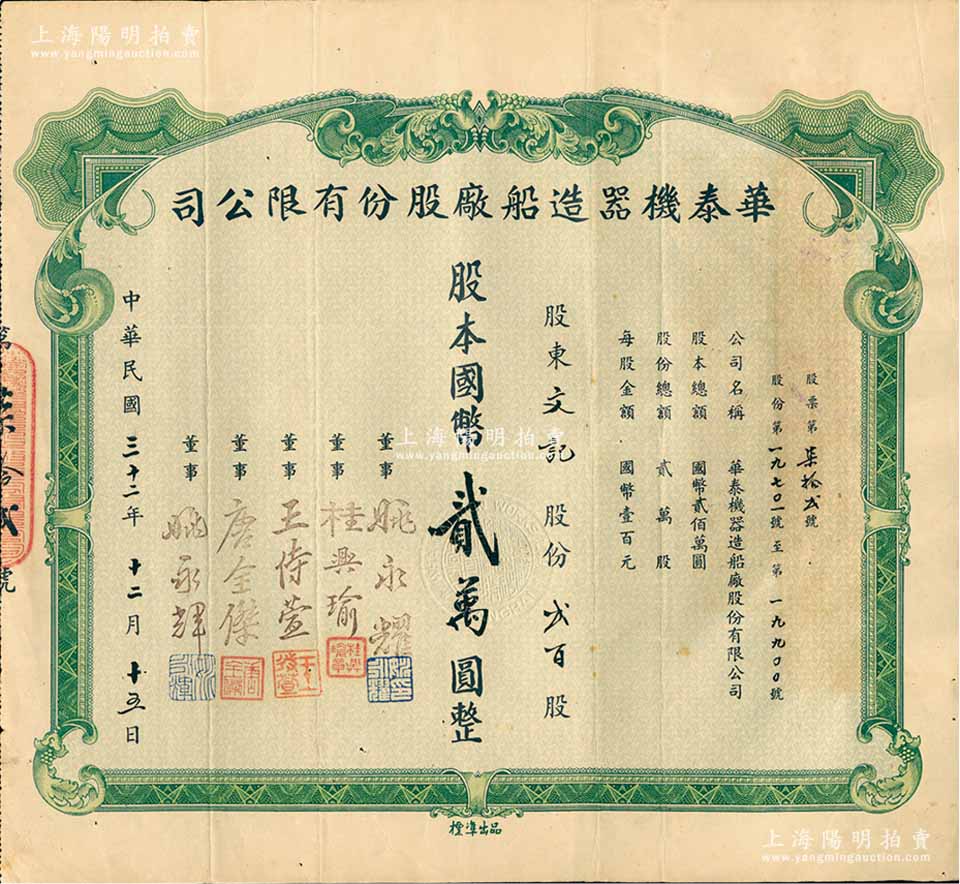 上海陽明拍賣
www.yangmingauction.com
華泰機器造船廠股份有限公司
股票第柒拾弍號
股份第一九七〇一號至第一九九〇〇號
公司名稱 華泰機器造船廠股份有限公司
股本總額 國幣貳佰萬圓
股份總額 貳萬股
每股金額 國幣壹百元
股東文記 股份弍百股
股本國幣貳萬圓整
董事 姚永耀
董事 桂興瑜
董事 王侍萱
董事 唐全傑
董事 姚永輝
中華民國三十二年十二月十五日
第柒拾弍號
標準出品
上海陽明拍賣
www.yangmingauction.com
上海陽明拍賣
www.yangmingauction.com